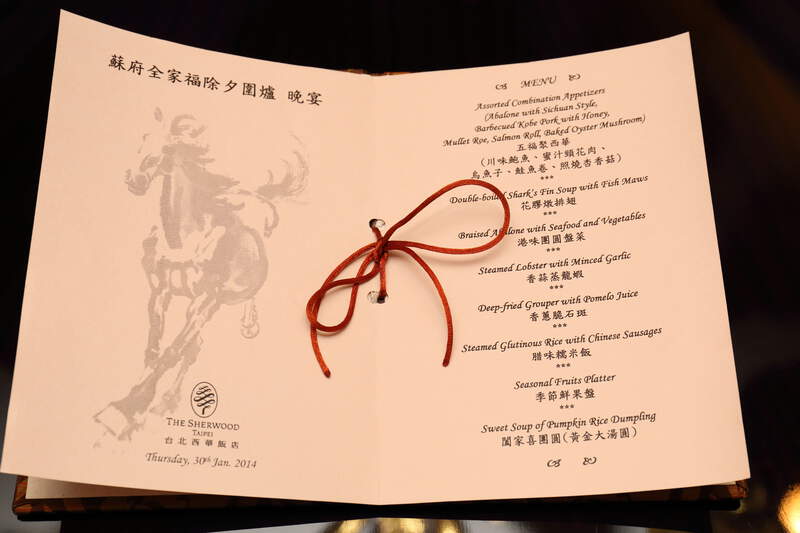 蘇府全家福除夕圍爐 晚宴
THE SHERWOOD
TAIPEI
台北西華飯店
Thursday, 30th Jan. 2014
MENU
Assorted Combination Appetizers
(Abalone with Sichuan Style,
Barbecued Kobe Pork with Honey,
Mullet Roe, Salmon Roll, Baked Oyster Mushroom)
五福聚西華
(川味鮑魚、蜜汁頸花肉、
烏魚子、鮭魚卷、照燒杏香菇)
***
Double-boiled Shark's Fin Soup with Fish Maws
花膠燉排翅
***
Braised Abalone with Seafood and Vegetables
港味團圓盤菜
***
Steamed Lobster with Minced Garlic
香蒜蒸龍蝦
***
Deep-fried Grouper with Pomelo Juice
香蔥脆石斑
***
Steamed Glutinous Rice with Chinese Sausages
腊味糯米飯
***
Seasonal Fruits Platter
季節鮮果盤
***
Sweet Soup of Pumpkin Rice Dumpling
闔家喜團圓(黃金大湯圓)